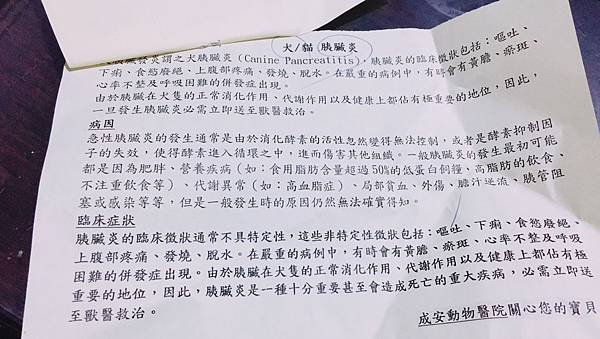 犬/貓 胰臟炎
胰臟發炎謂之犬胰臟炎(Canine Pancreatitis),胰臟炎的臨床徵狀包括:嘔吐、
下痢、食慾廢絕、上腹部疼痛、發燒、脫水。在嚴重的病例中,有時會有黃膽、瘀斑、
心率不整及呼吸困難的併發症出現。
由於胰臟在犬隻的正常消化作用、代謝作用以及健康上都佔有極重要的地位,因此,
一旦發生胰臟炎必需立即送至獸醫救治。
病因
急性胰臟炎的發生通常是由於消化酵素的活性忽然變得無法控制,或者是酵素抑制因
子的失效,使得酵素進入循環之中,進而傷害其他組織。一般胰臟炎的發生最初可能
都是因為肥胖、營養疾病(如:食用脂肪含量超過50%的低蛋白飼糧、高脂肪的飲食、
不注重飲食等)、代謝異常(如:高血脂症)、局部貧血、外傷、膽汁逆流、胰管阻
塞或感染等等,但是一般發生時的原因仍然無法確實得知。
臨床症狀
胰臟炎的臨床徵狀通常不具特定性,這些非特定性徵狀包括:嘔吐、下痢、食慾廢絕、
上腹部疼痛、發燒、脫水。在嚴重的病例中,有時會有黃膽、瘀斑、心率不整及呼吸
困難的併發症出現。由於胰臟在犬隻的正常消化作用、代謝作用以及健康上都佔有極
重要的地位,因此,胰臟炎是一種十分重要甚至會造成死亡的重大疾病,必需立即送
至獸醫救治。
成安動物醫院關心您的寶貝